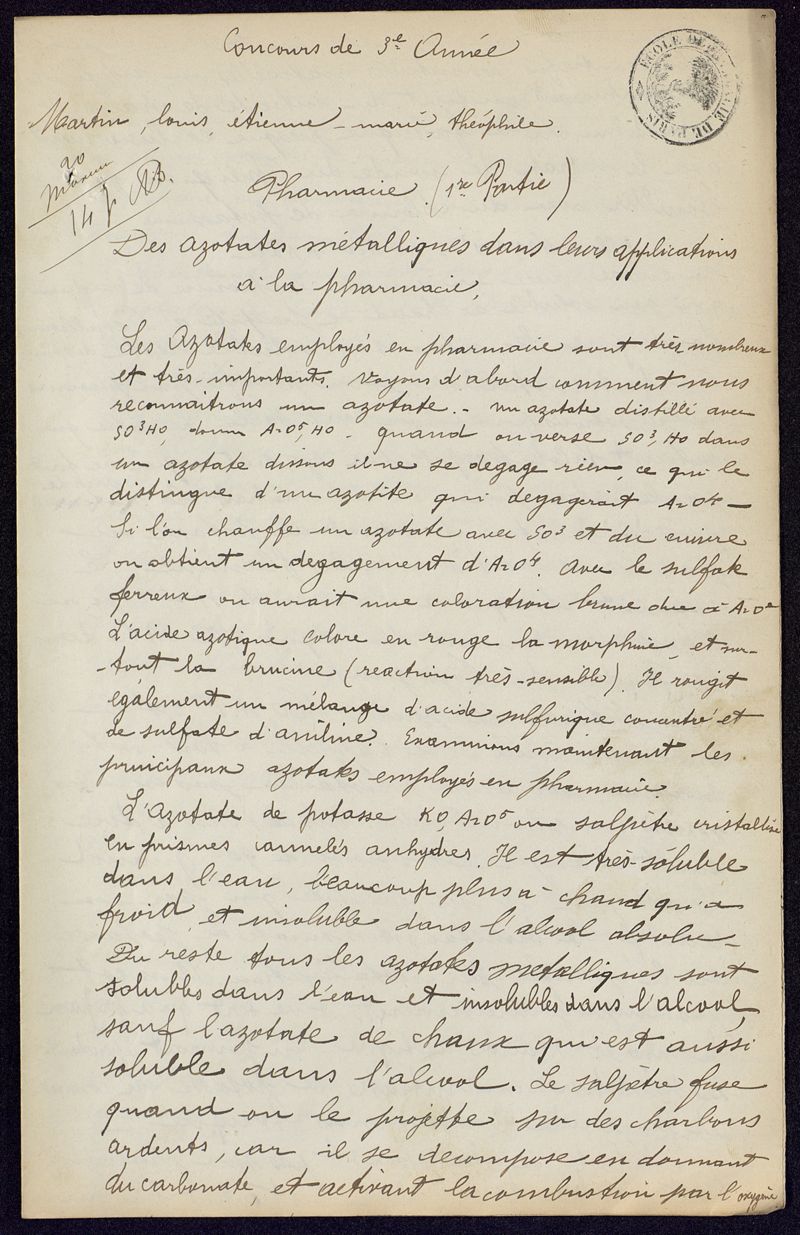 Concours de 3e Année
ÉCOLE DE PHARMACIE DE PARIS
Martin, louis, étienne-marie, théophile.
20
14
Pharmacie (1re Partie)
Des azotates métalliques dans leurs applications
à la pharmacie.
Les Azotates employés en pharmacie sont très nombreux
et très-importants. Voyons d'abord comment nous
reconnaitrons un azotate.- un azotate distillé avec
SO3HO, donne AzO5,HO. quand on verse SO3,HO dans
un azotate dissous il ne se dégage rien, ce qui le
distingue d'un azotite qui dégagerait AzO4 -
Si l'on chauffe un azotate avec SO3 et du cuivre
on obtient un dégagement d'AzO4. Avec le sulfate
ferreux on aurait une coloration brune due à AzO2
L'acide azotique colore en rouge la morphine, et sur-
-tout la brucine (reaction très-sensible). Il rougit
également un mélange d'acide sulfurique concentré et
de sulfate d'aniline. Examinons maintenant les
principaux azotates employés en pharmacie
L'Azotate de potasse KO,AzO5 ou salpêtre cristallise
en prismes cannelés anhydres. Il est très-soluble
dans l'eau, beaucoup plus à-chaud qu'a
froid, et insoluble dans l'alcool absolu-
Du reste tous les azotates metalliques sont
solubles dans l'eau et insolubles dans l'alcool,
sauf l'azotate de chaux qui est aussi
soluble dans l'alcool. Le salpêtre fuse
quand on le projette sur des charbons
ardents, car il se decompose en donnant
du carbonate, et activant la combustion par l'oxygène